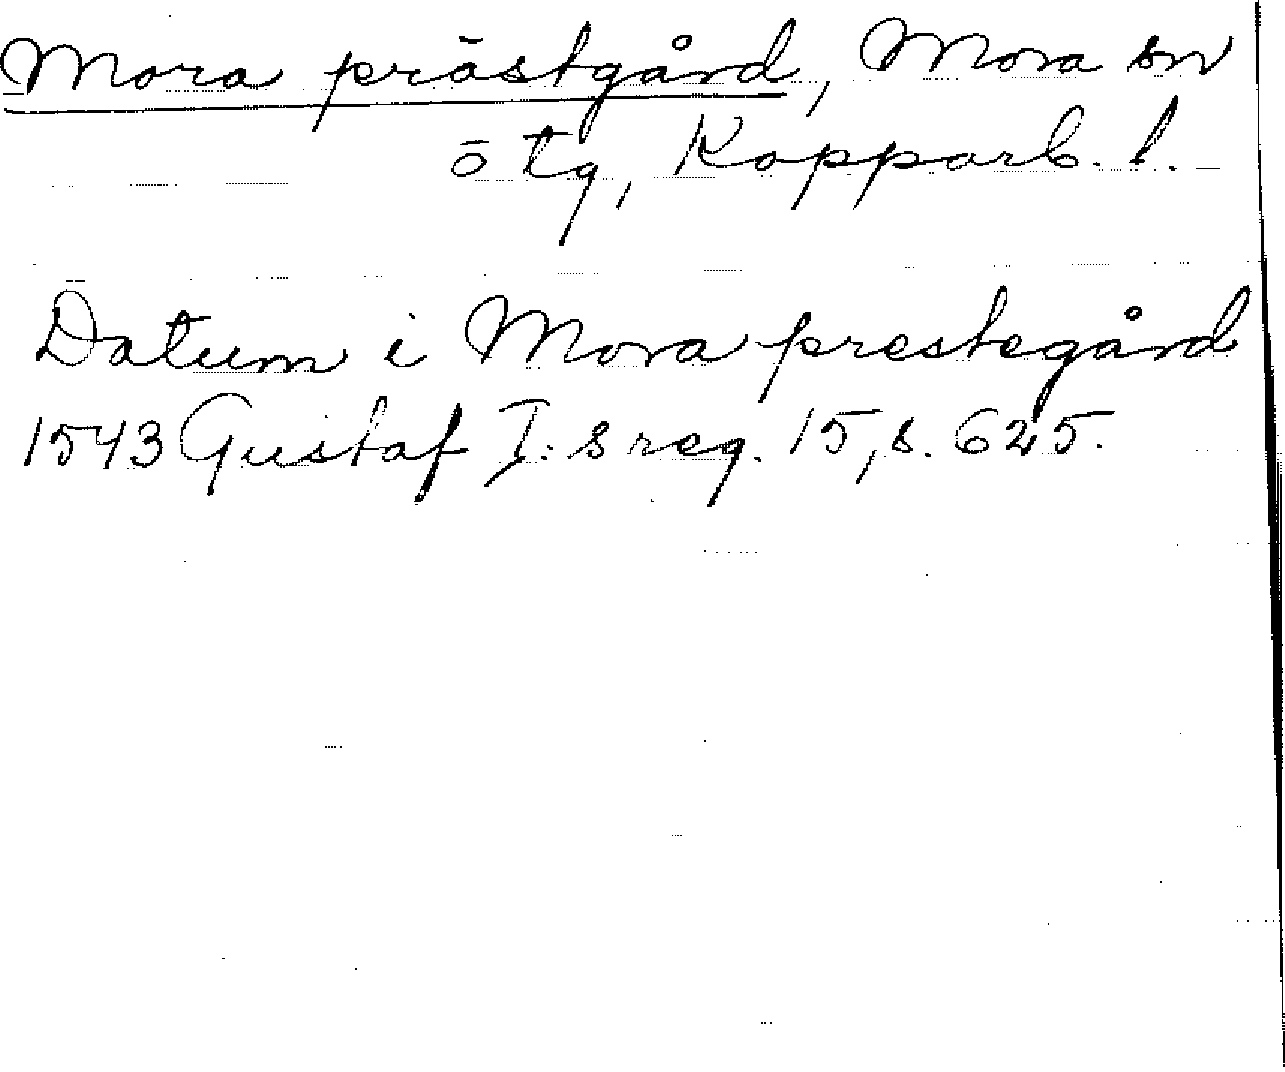 Mora prästgård, Mora sn
ö tg, Kopparb. l.
Datum i Mora prestegård
1543 Gustaf I:s reg. 15, s. 625.